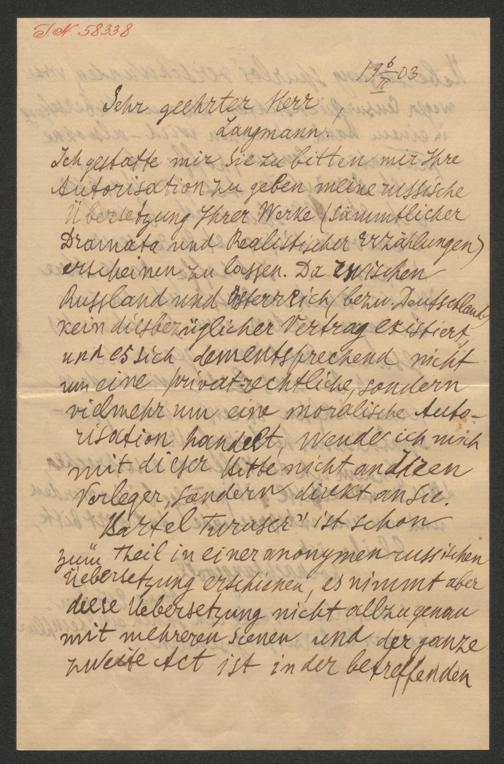 J. N. 58338
19 6/II 03
Sehr geehrter Herr
Langmann!
Ich gestatte mir Sie zu bitten mir Ihre
Autorisation zu geben meine russische
Übersetzung Ihrer Werke (sämmtlicher
Dramata und Realistischer Erzählungen)
erscheinen zu lassen. Da zwischen
Russland und Österreich (bezw. Deutschland
kein diesbezüglicher Vertrag existiert,
und es sich dementsprechend nicht
um eine privat-rechtliche, sondern
vielmehr um eine moralische Auto-
risation handelt, wende ich mich
mit dieser Bitte nicht an Ihren
Verleger, sondern direkt an Sie.
"Bartel Turaser" ist schon
zum Theil in einer anonymen russischen
Uebersetzung erschienen, es nimmt aber
diese Uebersetzung nicht allzu genau
mit mehreren Scenen und der ganze
zweite Act ist in der betreffenden